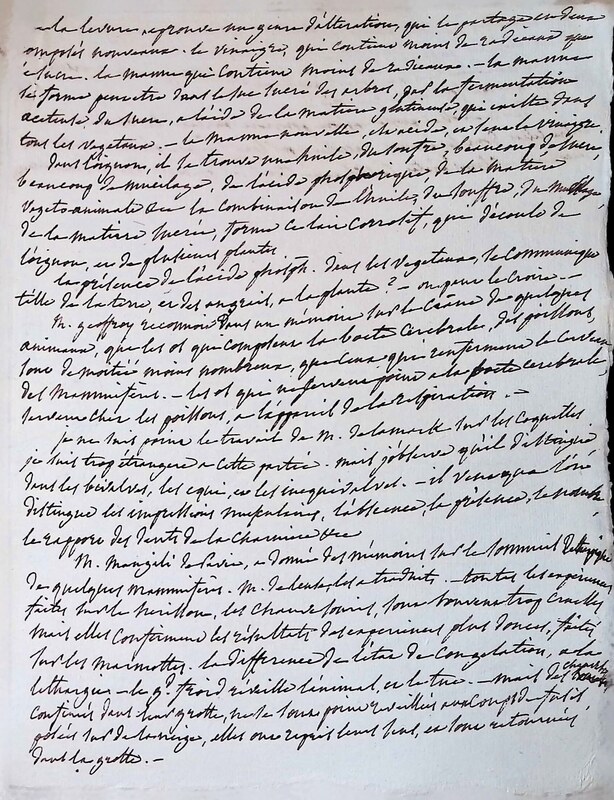 - la levure, eprouve un genre d'alteration, qui le partage en deux
composés nouveaux. le vinaigre, qui contient moins de radicaux que
le sucre. la manne qui contient moins de radicaux. - la manne
se forme peut etre dans le suc sucré des arbres, par la fermentation
aceteuse du sucre, a l'aide de la matiere glutineuse, qui existe dans
tous les vegetaux. - la manne nouvelle, est acide, et sent le vinaigre.
dans l'oignon, il se trouve une huile, du souffre, beaucoup de sucre,
beaucoup de mucilage, de l'acide phosphorique de la matiere
vegeto animale &c la combinaison de l'huile, du souffre, du mucilage
de la matiere sucrée, forme ce lait corrosif, qui découle de
l'oignon, et de plusieurs plantes
la présence de l'acide phosph. dans les vegetaux, se communique
t'elle de la terre, et des engrais, a la plante? - on peut le croire. -
M. geoffroy reconnoit dans un mémoire sur le crâne de quelques
animaux, que les os qui composent la boete cerebrale, des poissons,
sont de moitié moins nombreux, que ceux qui renferment le cerveau
des mammifères. - les os qui ne servent point a la boete cerebrale,
servent chez les poissons, a l'appareil de la respiration. -
je ne suis point le travail de M. delamark sur les coquilles
je suis trop étrangere a cette partie. mais j'observe qu'il distingue
dans les bivalves, les equi, et les inequivalves. - il veut que l'on
distingue les impressions musculaires, l'absence, la présence, le nombre
le rapport des dents de la charniere &c
M. mangili de Pavie, a donné des mémoires sur le sommeil léthargique
de quelques mammifères. M. deleuze les a traduits. - toutes les experiences
faites sur le herisson, les chauve souris, sont souvent trop cruelles
mais elles confirment les résultats des experiences plus douces, faites
sur les marmottes. la difference de l'état de congelation, a la
lethargie - le gd froid réveille l'animal, et le tue. - mais des chauves souris
confinés dans leur grotte, ne se sont point reveillées aux coups de fusil,
posées sur de la neige, elles ont repris leurs sens, et sont retournées
dans la grotte. -